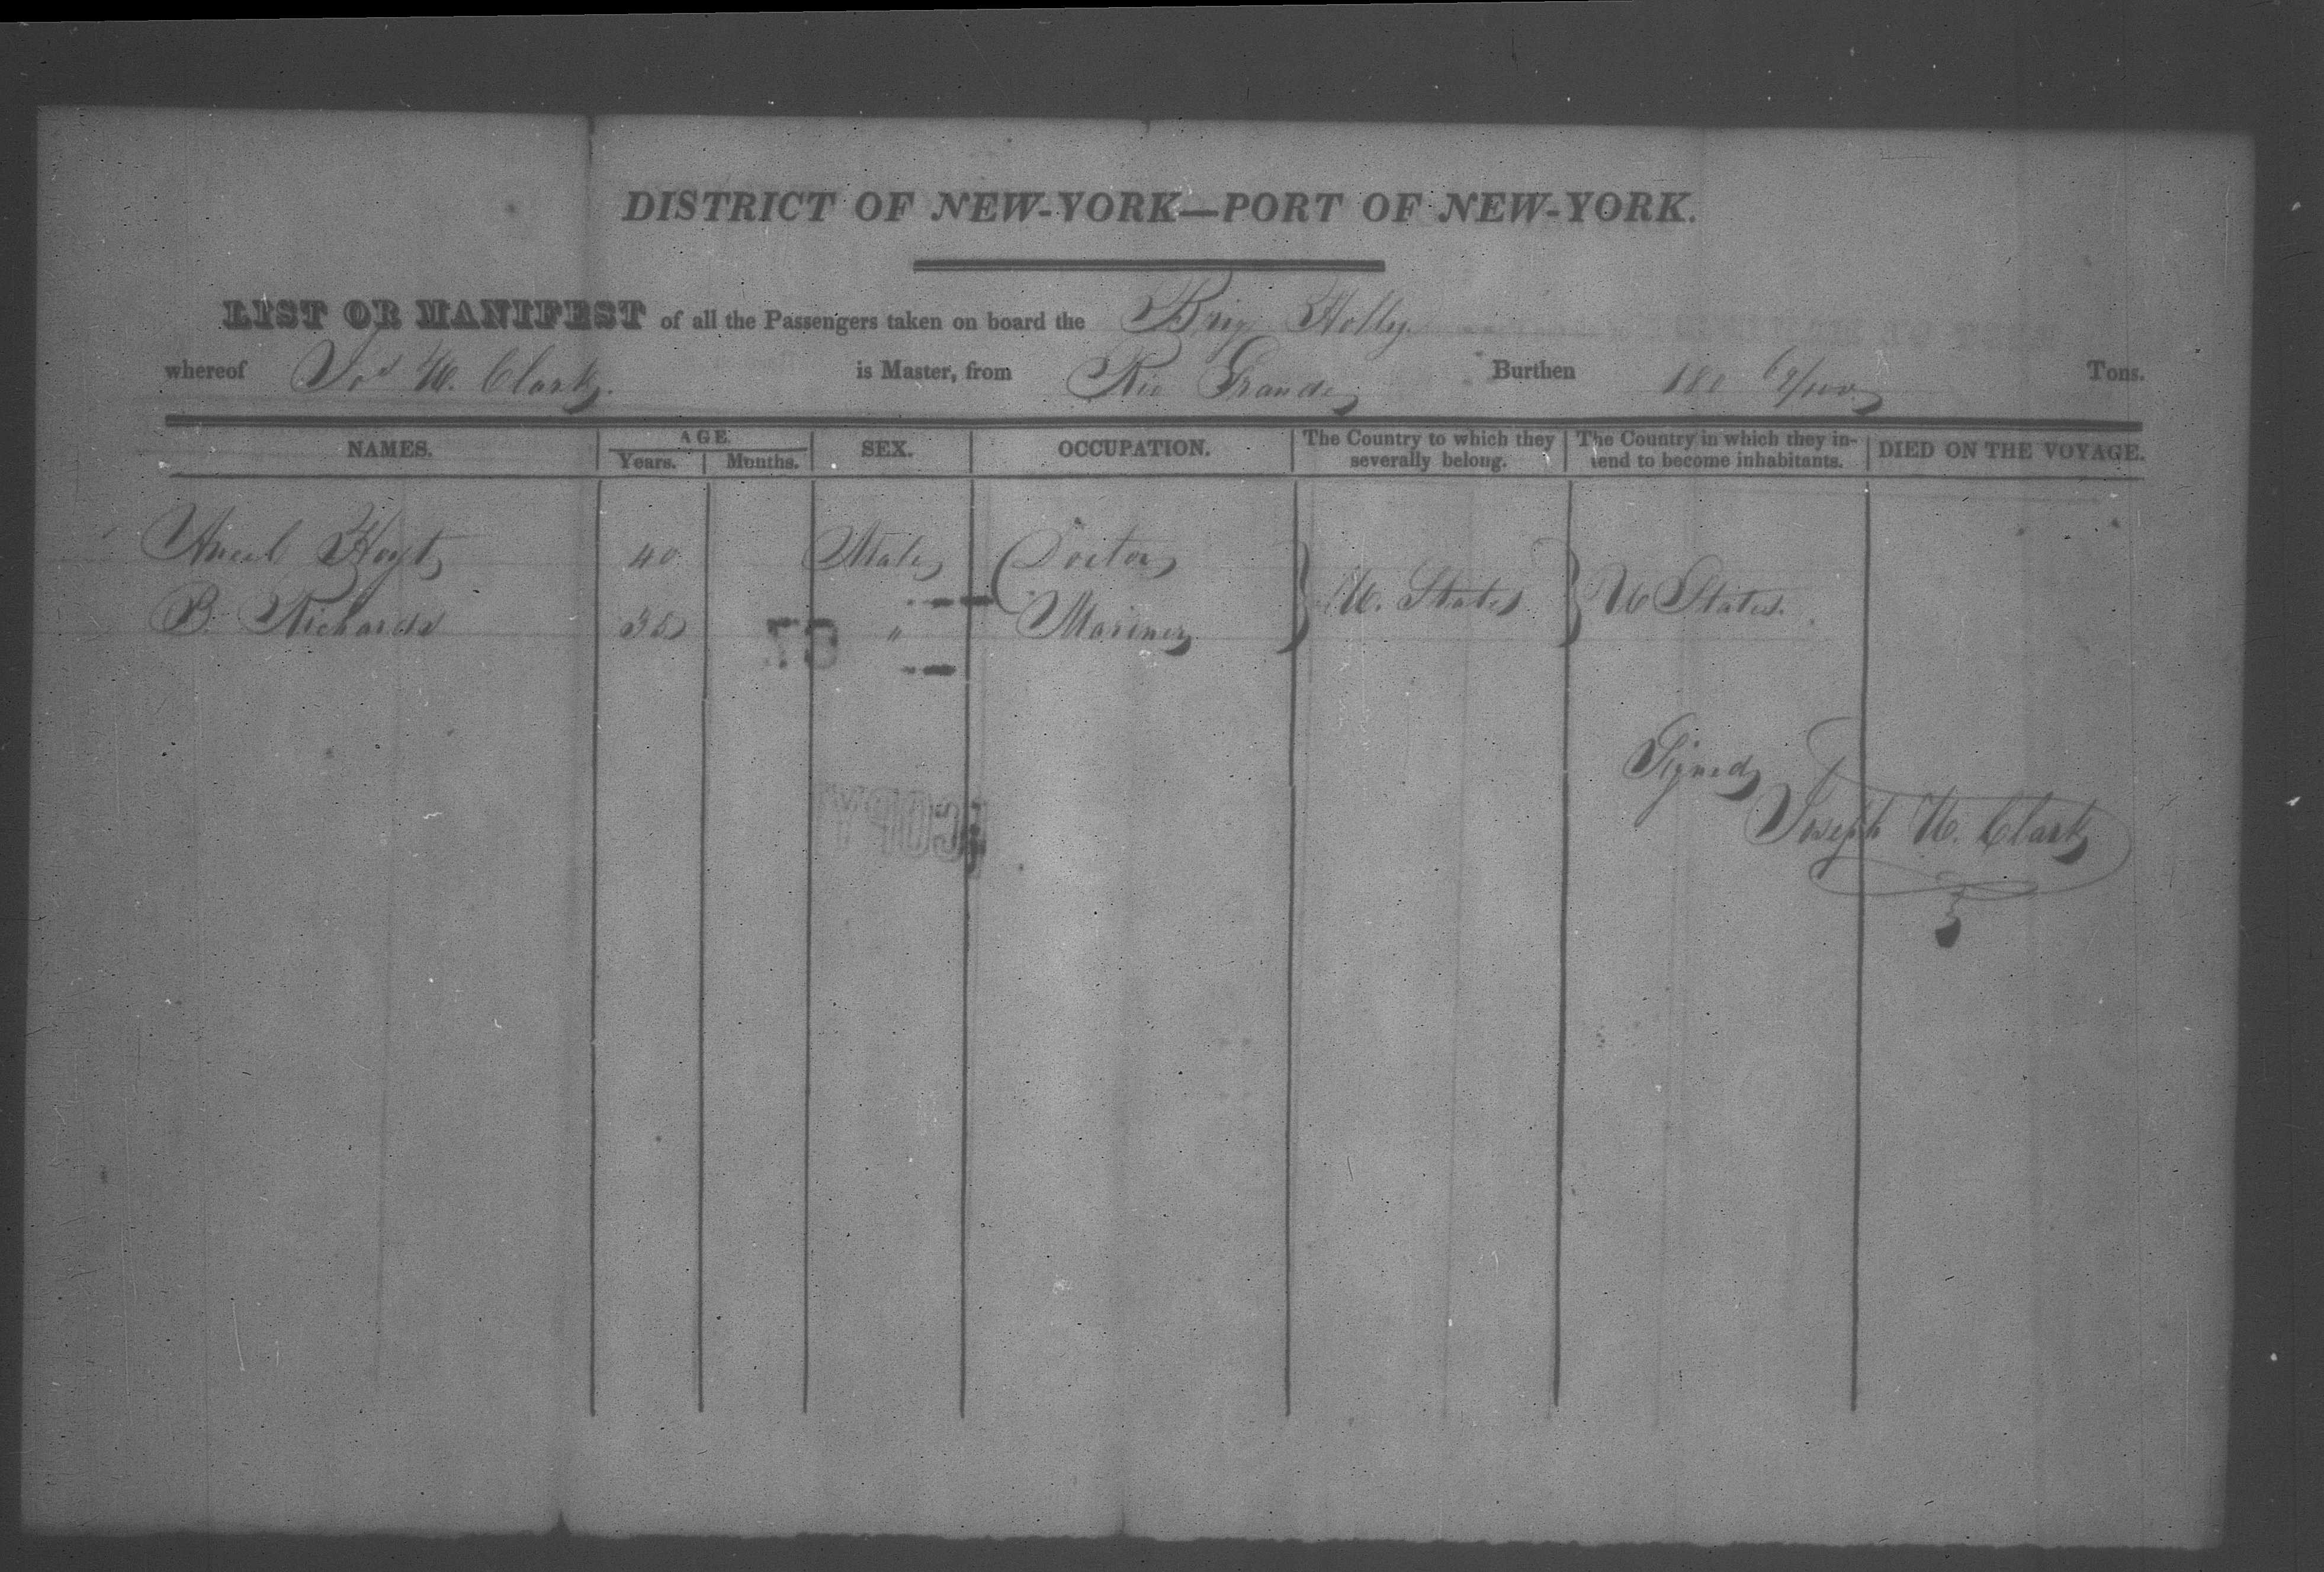 DISTRICT OF NEW-YORK—PORT OF NEW-YORK.
LIST OR MANIFEST of all the Passengers taken on board the Brig Holly.
whereof Jos W. Clark. is Master, from Rio Grande Burthen 180 69/100 Tons.
NAMES. AGE. Years. Months. SEX. OCCUPATION. The Country to which they severally belong. The Country in which they intend to become inhabitants. DIED ON THE VOYAGE.
Hoyt 40 Male Doctor
B. Richards 35 " Mariner } U. States } U States.
Signed
Joseph W. Clark
COPY